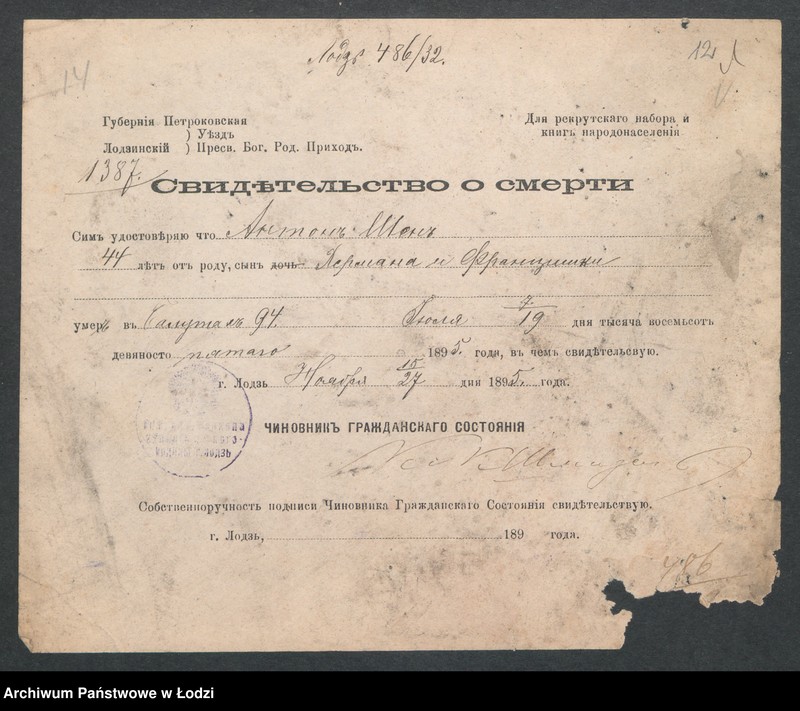 Лодзь 486/32.
12
14
Губернія Петроковская
) Уѣздъ
Лодзинскій ) Пресв. Бог. Род. Приходъ.
Для рекрутскаго набора и
книгъ народонаселенія
1387.
Свидѣтельство о смерти
Симъ удостовѣряю что Антонъ Шенъ
44 лѣтъ отъ роду, сынъ дочь Германа и Францишки
умеръ въ Балутахъ 94. Іюля 7/19 дня тысяча восемьсотъ
девяносто пятаго 1895. года, въ чемъ свидѣтельствую.
г. Лодзь Ноября 15/27 дня 1895. года.
ЧИНОВНИКЪ ГРАЖДАНСКАГО СОСТОЯНІЯ
Собственноручность подписи Чиновника Гражданскаго Состоянія свидѣтельствую.
г. Лодзь, 189 года.
486
Archiwum Państwowe w Łodzi